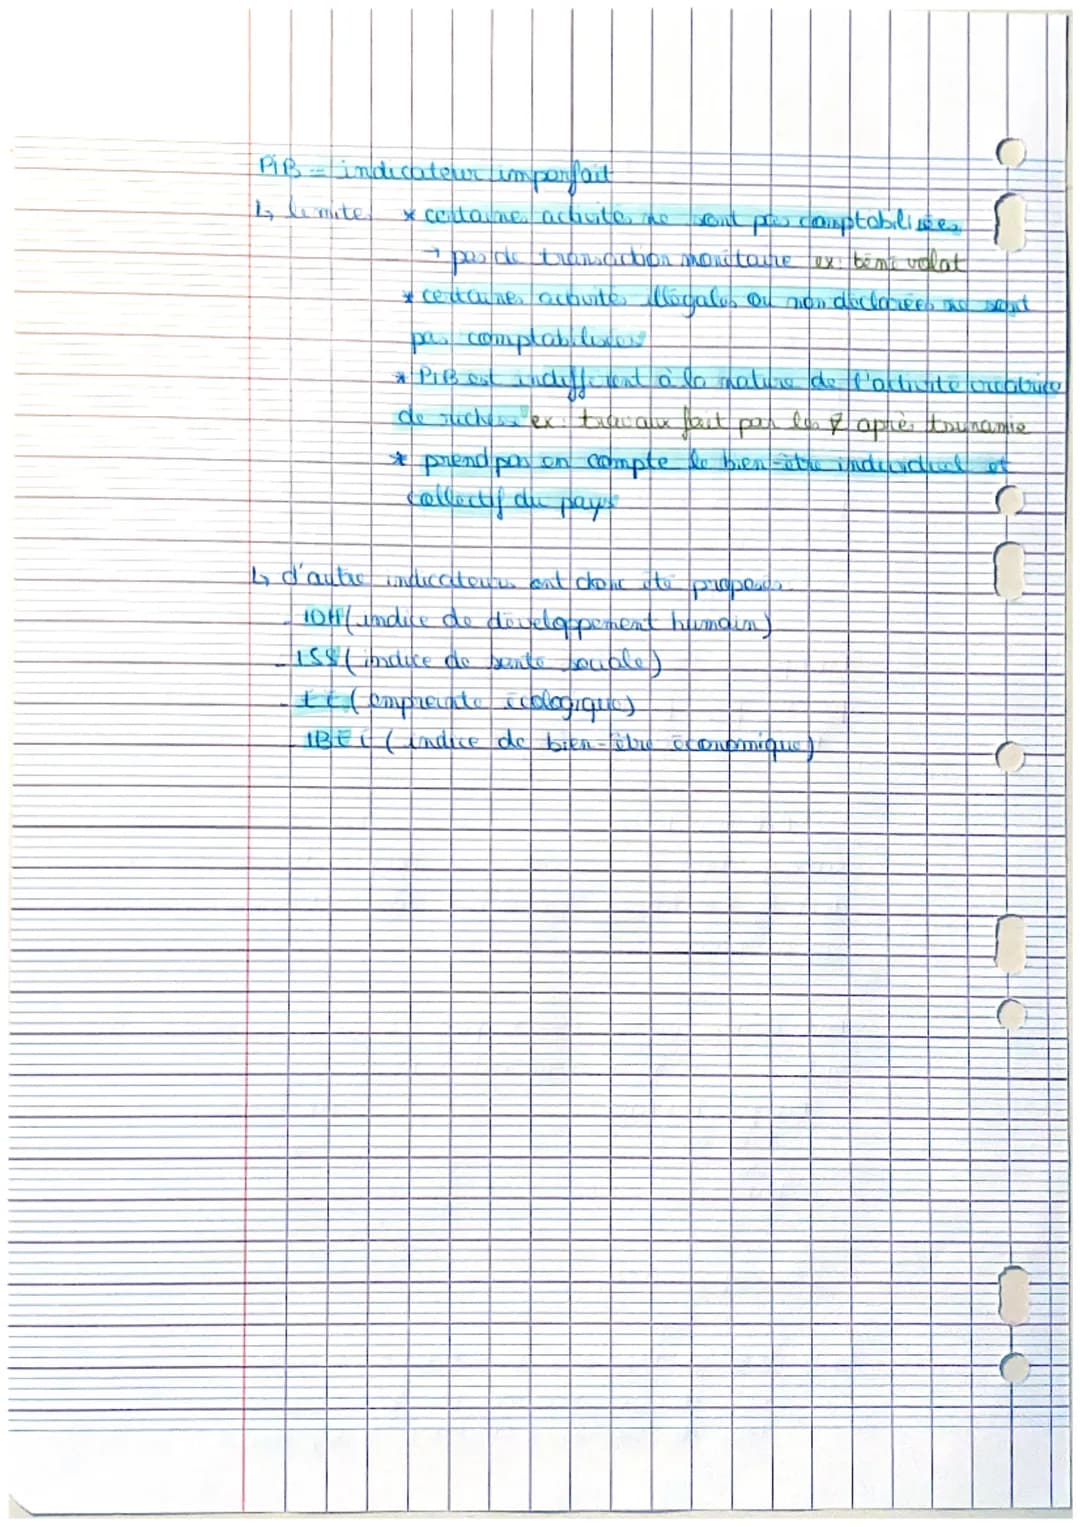 PIB = indicateur imparfait
↳ limites * certaines activités ne sont pas comptabilisées
→ pas de transaction monétaire ex: bénévolat
* certaines activités illégales ou non déclarées ne sont
pas comptabilisées
* PIB est indifférent à la nature de l'activité créatrice
de richesse ex: travaux fait par les après tsunamie
* prend pas en compte le bien-être individuel et
collectif du pays
↳ d'autre indicateurs ont donc été proposés
- IDH (indice de développement humain)
- ISS (indice de santé sociale)
- EE (empreinte écologique)
- IBEE (indice de bien-être économique)